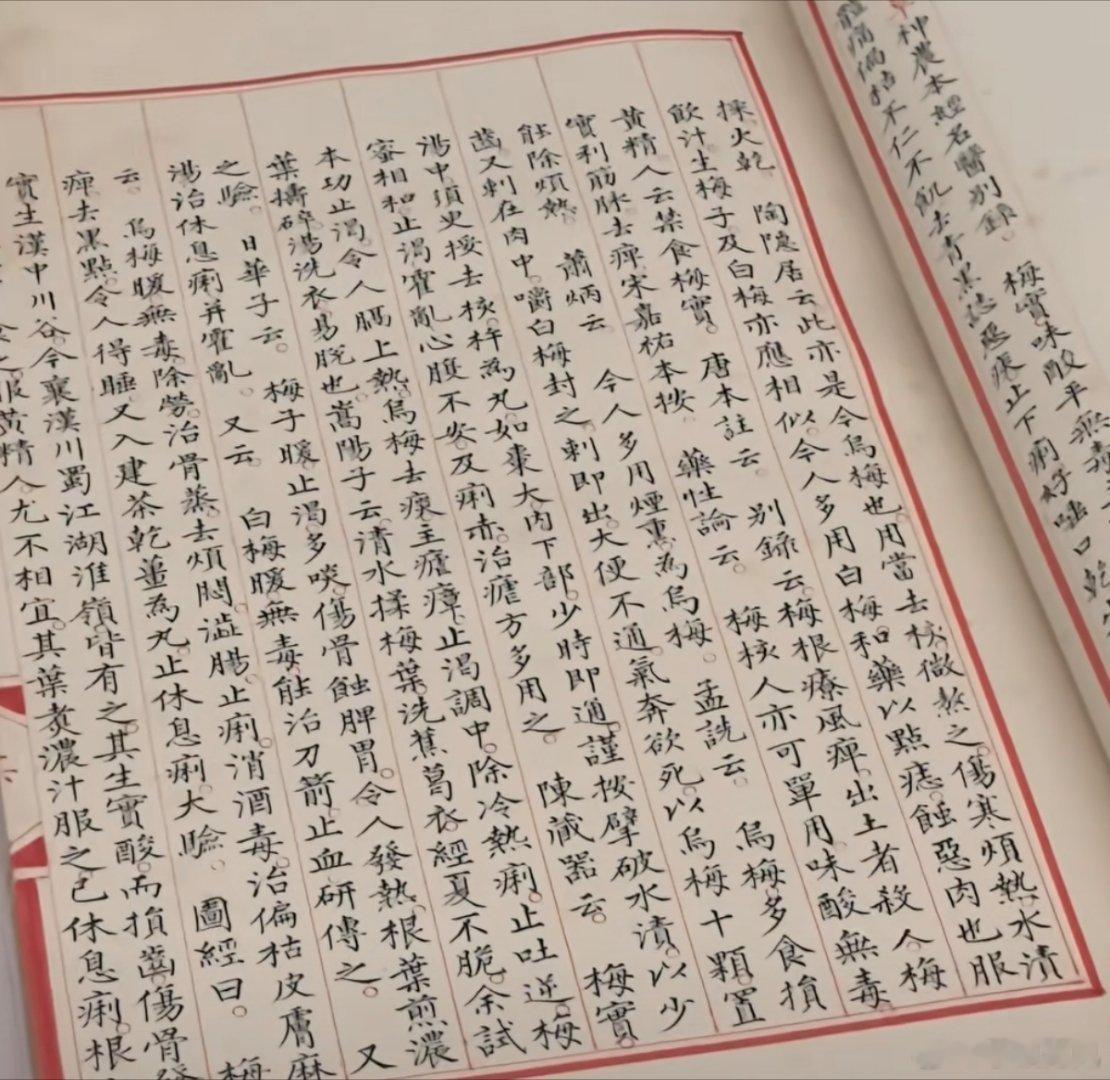 神農本經名醫別錄。 梅實味酸平無毒
體痛偏枯不仁不飢去青黑誌惡疾止下痢好唾口乾
採火乾。 陶隱居云此亦是今烏梅也。用當去核微熬之。傷寒煩熱。水漬
飲汁。生梅子及白梅亦應相似。今人多用白梅和藥以點痣。蝕惡肉也。服
黃精人云禁食梅實。 唐本註云。 別錄云。梅根療風痺。出土者殺人。梅
實利筋脉。去痺宋嘉祐本按。 藥性論云。 梅核人亦可單用。味酸無毒。
能除煩熱。 蕭炳云。 今人多用煙熏為烏梅。 孟詵云。 烏梅多食損
齒又刺在肉中。嚼白梅封之。刺即出。大便不通。氣奔欲死。以烏梅十顆置
湯中。須臾挼去核。杵為丸。如棗大。內下部。少時即通。謹按擘破水漬。以少
蜜相和。止渴。霍亂心腹不安。及痢赤。治瘧方多用之。 陳藏器云。 梅實
本功止渴。令人膈上熱。烏梅去痰。主瘧瘴。止渴調中。除冷熱痢。止吐逆。梅
葉擣碎。湯洗衣易脫也。嵩陽子云。清水揉梅葉。洗蕉葛衣。經夏不脆。余試
之驗。 日華子云。 梅子暖。止渴多啖。傷骨蝕脾胃。令人發熱。根葉煎濃
湯治休息痢并霍亂。 又云。 白梅暖無毒。能治刀箭。止血研傅之。 又
云。 烏梅暖無毒。除勞。治骨蒸。去煩悶。澁腸。止痢。消酒毒。治偏枯皮膚麻
痺。去黑點。令人得睡。又入建茶乾薑為丸。止休息痢。大驗。 圖經曰。 梅
實生漢中川谷。今襄漢川蜀江湖淮嶺皆有之。其生實酸。而損齒傷骨發
服黃精人。尤不相宜。其葉煮濃汁服之。已休息痢。根